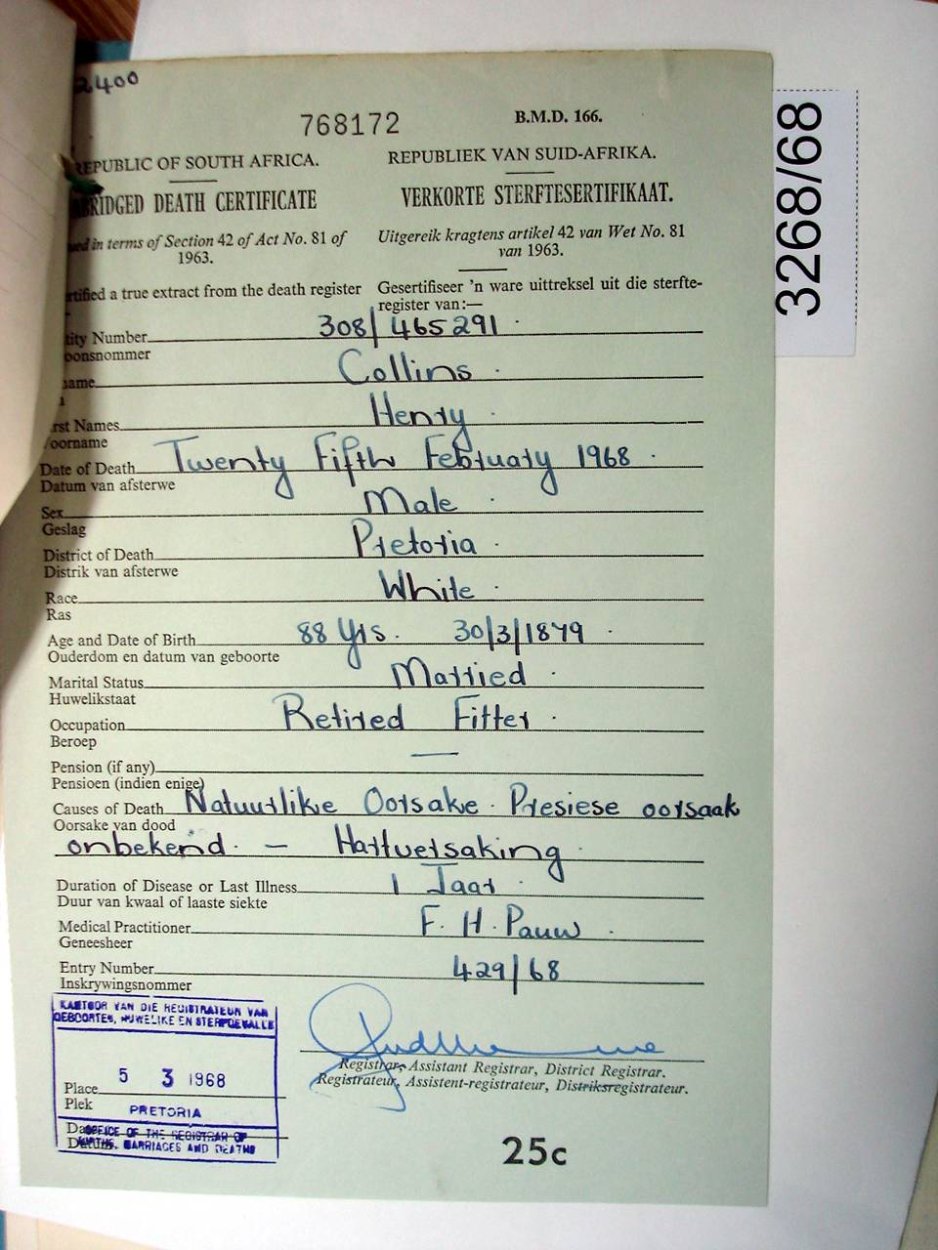 2400
768172
B.M.D. 166.
REPUBLIC OF SOUTH AFRICA.
REPUBLIEK VAN SUID-AFRIKA.
BRIDGED DEATH CERTIFICATE
VERKORTE STERFTESERTIFIKAAT.
ued in terms of Section 42 of Act No. 81 of
1963.
Uitgereik kragtens artikel 42 van Wet No. 81
van 1963.
rtified a true extract from the death register
Gesertifiseer 'n ware uittreksel uit die sterfte-
register van:—
tity Number 308/465291
oonsnommer
name Collins
rst Names Henry
oorname
Date of Death Twenty Fifth February 1968
Datum van afsterwe
Sex Male
Geslag
District of Death Pretoria
Distrik van afsterwe
Race White
Ras
Age and Date of Birth 88 Yrs. 30/3/1879
Ouderdom en datum van geboorte
Marital Status Married
Huwelikstaat
Occupation Retired Fitter
Beroep
Pension (if any) —
Pensioen (indien enige)
Causes of Death Natuurlike Oorsake. Presiese oorsaak
Oorsake van dood
onbekend. — Hartversaking
Duration of Disease or Last Illness 1 Jaar
Duur van kwaal of laaste siekte
Medical Practitioner F. H. Pauw
Geneesheer
Entry Number 429/68
Inskrywingsnommer
KANTOOR VAN DIE REGISTRATEUR VAN
GEBOORTES, HUWELIKE EN STERFGEVALLE
Registrar, Assistant Registrar, District Registrar.
Registrateur, Assistent-registrateur, Distriksregistrateur.
Place 5 3 1968
Plek
PRETORIA
OFFICE OF THE REGISTRAR OF
BIRTHS, MARRIAGES AND DEATHS
25c
3268/68